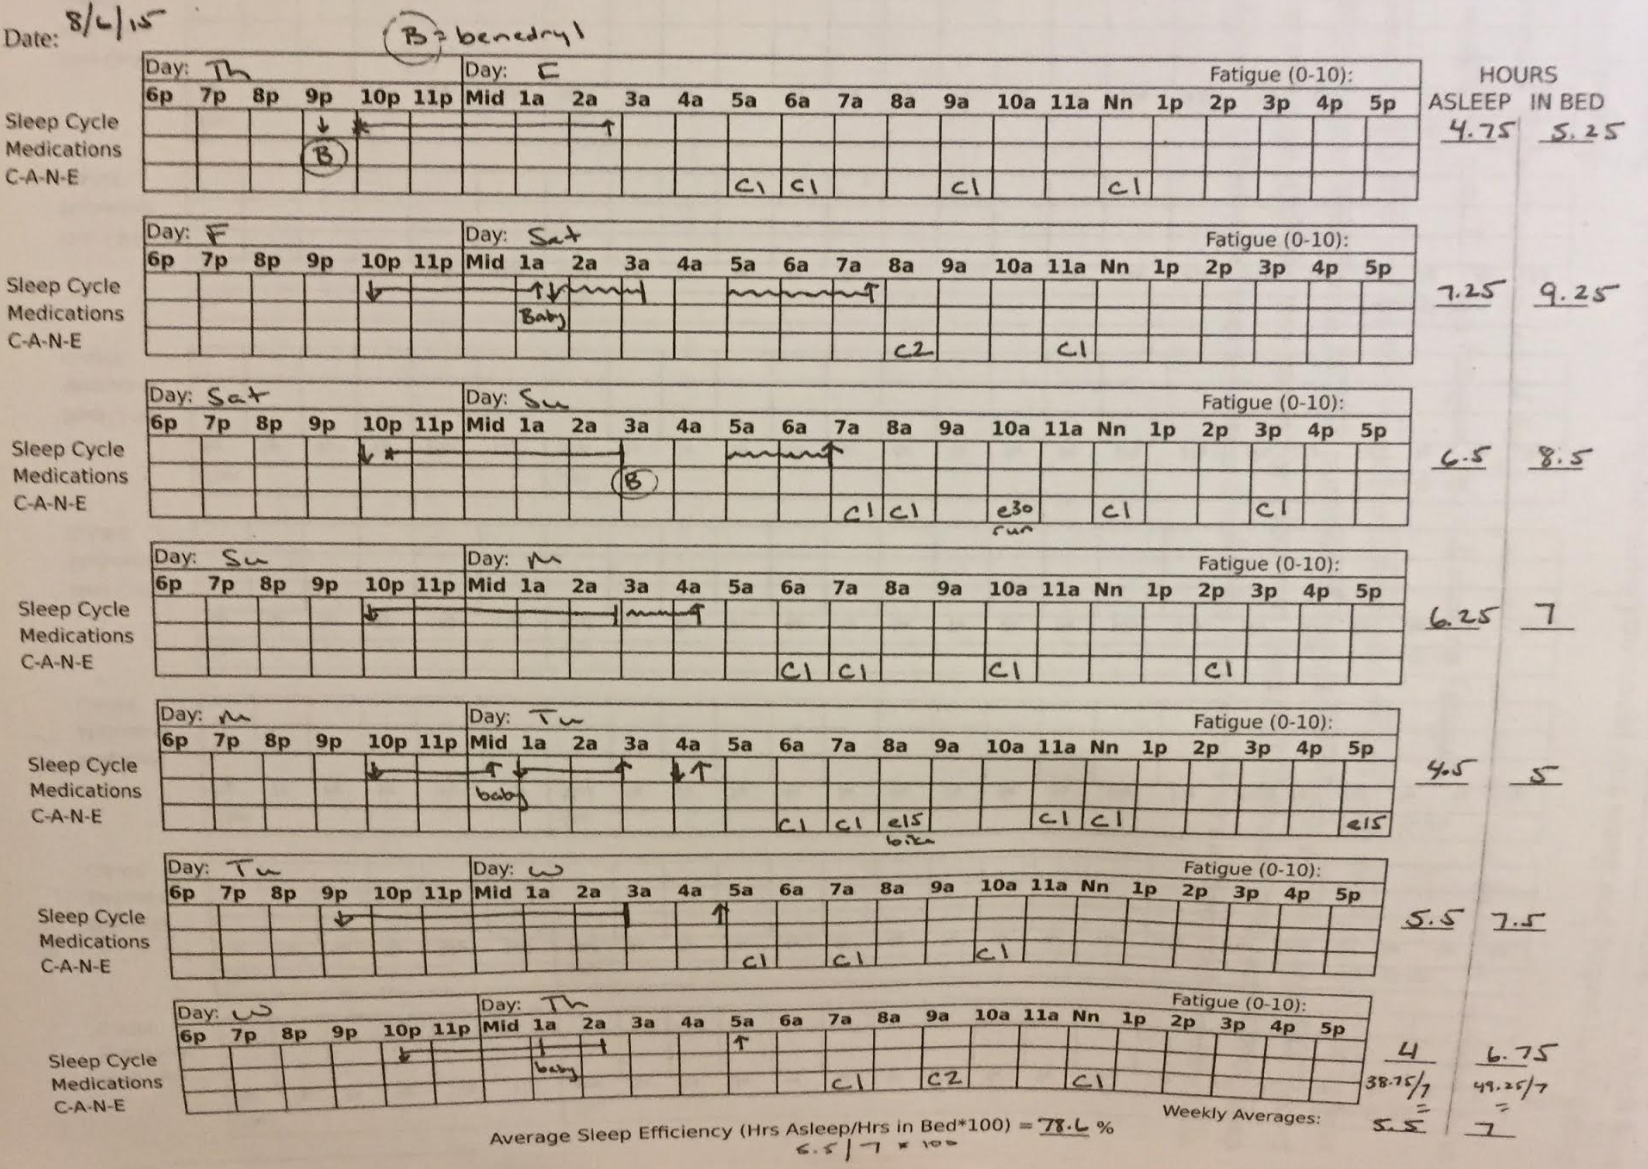 Date: 8/6/15
B = benedryl
Day: Th Day: F Fatigue (0-10): HOURS
6p 7p 8p 9p 10p 11p Mid 1a 2a 3a 4a 5a 6a 7a 8a 9a 10a 11a Nn 1p 2p 3p 4p 5p ASLEEP IN BED
Sleep Cycle 4.75 5.25
Medications B
C-A-N-E C1 C1 C1 C1
Day: F Day: Sat Fatigue (0-10):
6p 7p 8p 9p 10p 11p Mid 1a 2a 3a 4a 5a 6a 7a 8a 9a 10a 11a Nn 1p 2p 3p 4p 5p
Sleep Cycle 7.25 9.25
Medications Baby
C-A-N-E C2 C1
Day: Sat Day: Su Fatigue (0-10):
6p 7p 8p 9p 10p 11p Mid 1a 2a 3a 4a 5a 6a 7a 8a 9a 10a 11a Nn 1p 2p 3p 4p 5p
Sleep Cycle 6.5 8.5
Medications B
C-A-N-E C1 C1 e30 C1 C1
run
Day: Su Day: M Fatigue (0-10):
6p 7p 8p 9p 10p 11p Mid 1a 2a 3a 4a 5a 6a 7a 8a 9a 10a 11a Nn 1p 2p 3p 4p 5p
Sleep Cycle 6.25 7
Medications
C-A-N-E C1 C1 C1 C1
Day: M Day: Tu Fatigue (0-10):
6p 7p 8p 9p 10p 11p Mid 1a 2a 3a 4a 5a 6a 7a 8a 9a 10a 11a Nn 1p 2p 3p 4p 5p
Sleep Cycle 4.5 5
Medications baby
C-A-N-E C1 C1 e15 C1 C1 e15
bike
Day: Tu Day: W Fatigue (0-10):
6p 7p 8p 9p 10p 11p Mid 1a 2a 3a 4a 5a 6a 7a 8a 9a 10a 11a Nn 1p 2p 3p 4p 5p
Sleep Cycle 5.5 7.5
Medications
C-A-N-E C1 C1 C1
Day: W Day: Th Fatigue (0-10):
6p 7p 8p 9p 10p 11p Mid 1a 2a 3a 4a 5a 6a 7a 8a 9a 10a 11a Nn 1p 2p 3p 4p 5p
Sleep Cycle 4 6.75
Medications baby C1 C2 C1 38.75/7 49.25/7
C-A-N-E = =
Weekly Averages: 5.5 7
Average Sleep Efficiency (Hrs Asleep/Hrs in Bed*100) = 78.6 %
5.5/7 * 100